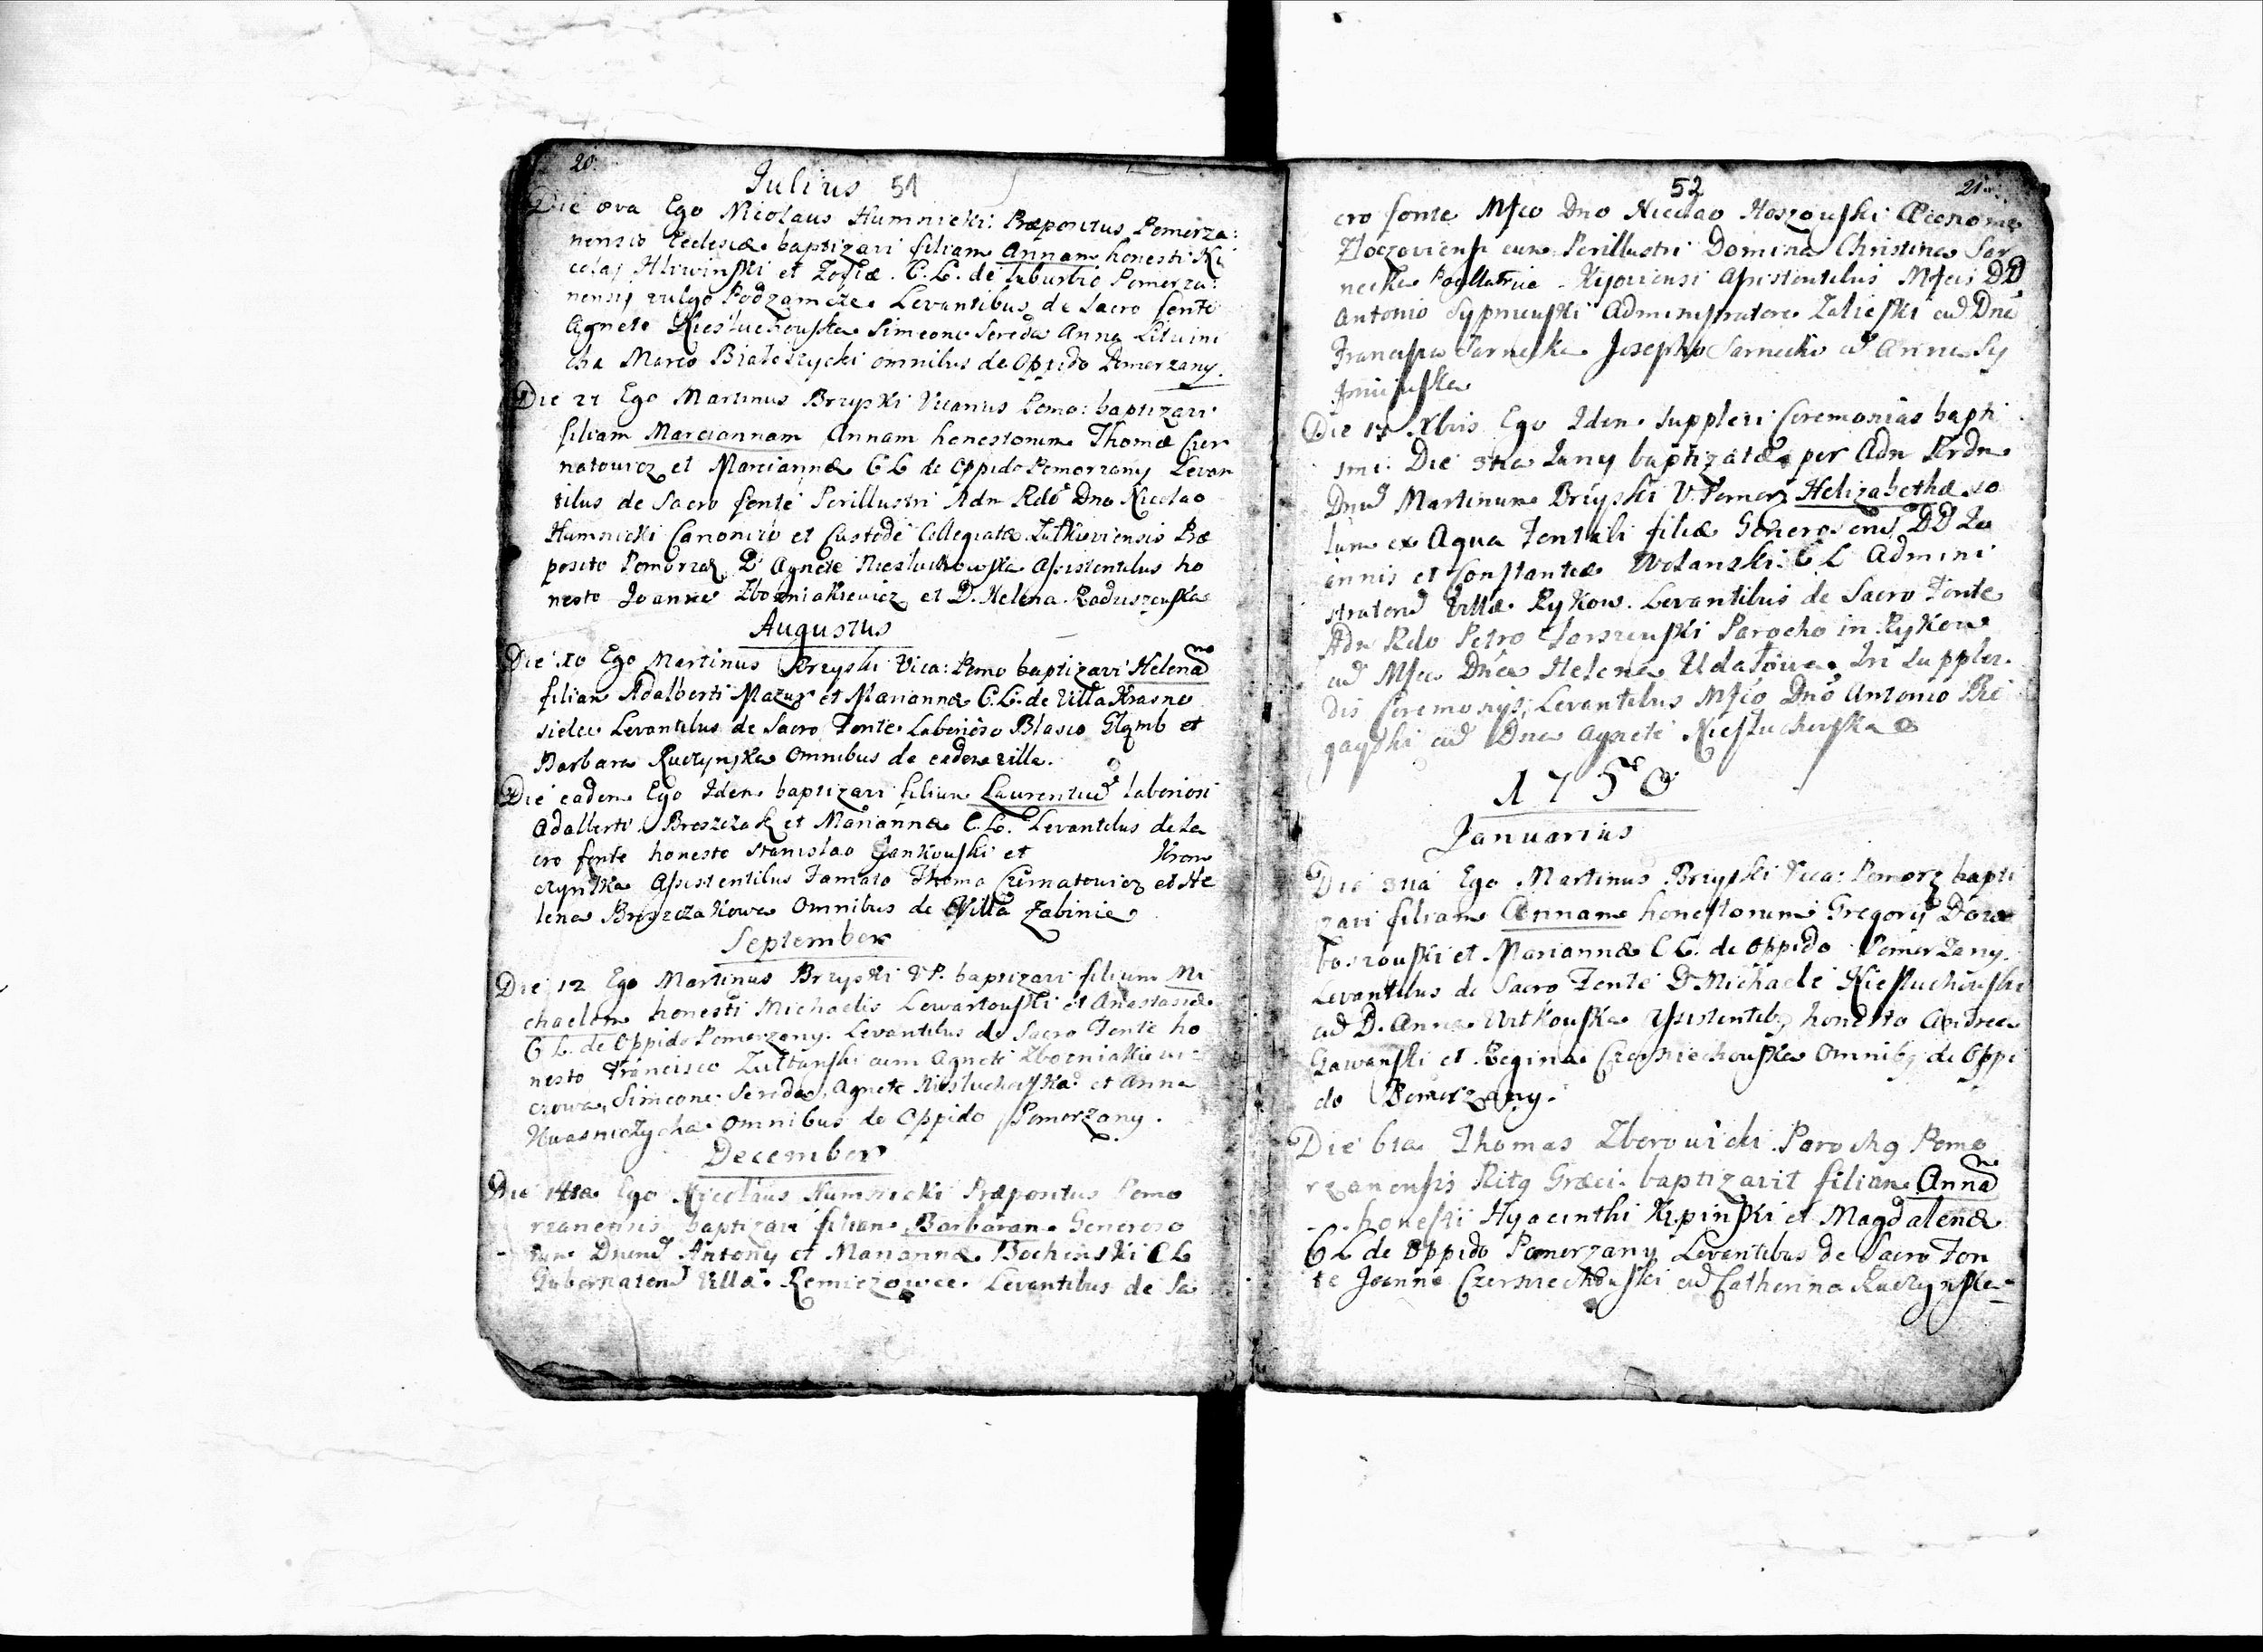 20.
Julius 51
Die 8va Ego Nicolaus Humnicki: Præpositus Pomorza:
nensis Ecclesiæ baptizavi filiam Annam honesti Ni
colai Hliwinski et Zofiæ C. L. de suburbio Pomorza:
nensij vulgo Podzamcze Levantibus de Sacro fonte
Agnete Kiesluchowska Simeone Sereda Anna Litwini
cha Marco Bialoszycki omnibus de Oppido Pomorzany.
Die 21 Ego Martinus Bryski Vicarius Pomo: baptizavi
filiam Mariannam Annam honestorum Thomæ Czer
natowicz et Mariannæ C L de Oppido Pomorzany Levan
tibus de Sacro fonte Perillustri Adm Rdo Dno Nicolao
Humnicki Canonico et Custode Collegiatæ Zulkieviensis Præ
posito Pomorza D Agnete Kiesluchowska Assistentibus ho
nesto Joanne Zbozniakiewicz et D. Helena Raduszewska
Augustus
Die 10 Ego Martinus Bryski Vica: Pomo baptizavi Helenam
filiam Adalberti Mazur et Mariannæ C. L. de Villa Krasno
sielce Levantibus de Sacro Fonte Laborioso Blasio Gląmb et
Barbara Ruczynska Omnibus de eadem villa.
Die eadem Ego Idem baptizavi filium Laurentium laboriosi
Adalberti Broszczak et Mariannæ C. L. Levantibus de Sa
cro fonte honesto Stanislao Jankowski et Krom
czynska Assistentibus Famato Thoma Czernatowicz et He
lena Broszczakowa Omnibus de Villa Zabinie
September
Die 12 Ego Martinus Bryski V P. baptizavi filium Mi
chaelem honesti Michaelis Lewartowski et Anastasiæ
C L. de Oppido Pomorzany. Levantibus de Sacro Fonte ho
nesto Francisco Zultanski cum Agnete Zbozniakie wi
czowa, Simeone Sereda, Agnete Kiesluchowska et Anna
Kwasniczycha omnibus de Oppido Pomorzany.
December
Die 14ta Ego Nicolaus Humnicki Præpositus Pomo
rzanensis baptizavi filiam Barbaram Generoso
rum Dnorum Antony et Mariannæ Bochinski C L
Gubernatorum Villæ Remizowce. Levantibus de Sa
52 21
cro fonte Mfco Dno Nicolao Hoszowski Œconomo
Zloczoviensi cum Perillustri Domina Christina Sar
necka Kijoviensi Assistentibus Mfcis DD
Antonio Sypniewski Administratore Zalieski cum Dna
Francisca Sarnecka Josepho Sarnecki cum Anna Sy
pniewska
Die 17 Xbris Ego Idem Supplevi Ceremonias bapti
smi Die 3tia Juny baptizatæ per Adm Rdum
Dnum Martinum Bryski V. Pomorz Helizabethæ so
lum ex Aqua Fontali filiæ Generosorum DD Jo
annis et Constantiæ Wolanski C L Admini
stratorum Villæ Rykow. Levantibus de Sacro Fonte
Adm Rdo Petro Parocho in Rykow
cum Mfca Dna Helena Udalowa. In Supplen
dis Ceremonijs Levantibus Mfco Dno Antonio
cum Dna Agnete Kiesluchowska
1750
Januarius
Die 3tia Ego Martinus Bryski Vica: Pomorz bapti
zavi filiam Annam honestorum Gregorij
et Mariannæ C L. de Oppido Pomorzany.
Levantibus de Sacro Fonte D Michaele Kiesluchowski
cum D. Anna Witkowska Assistentib9 honesto Andrea
Gawanski et Regina Czerniechowska Omnib9 de Oppi
do Pomorzany.
Die 6ta Thomas Zborowicki Paroch9 Pomo
rzanensis Rit9 Græci baptizavit filiam Annam
honesti Hyacinthi et Magdalenæ
C L de Oppido Pomorzany Levantibus de Sacro Fon
te Joanne Czerniechowski cum Catherina Ruczynska